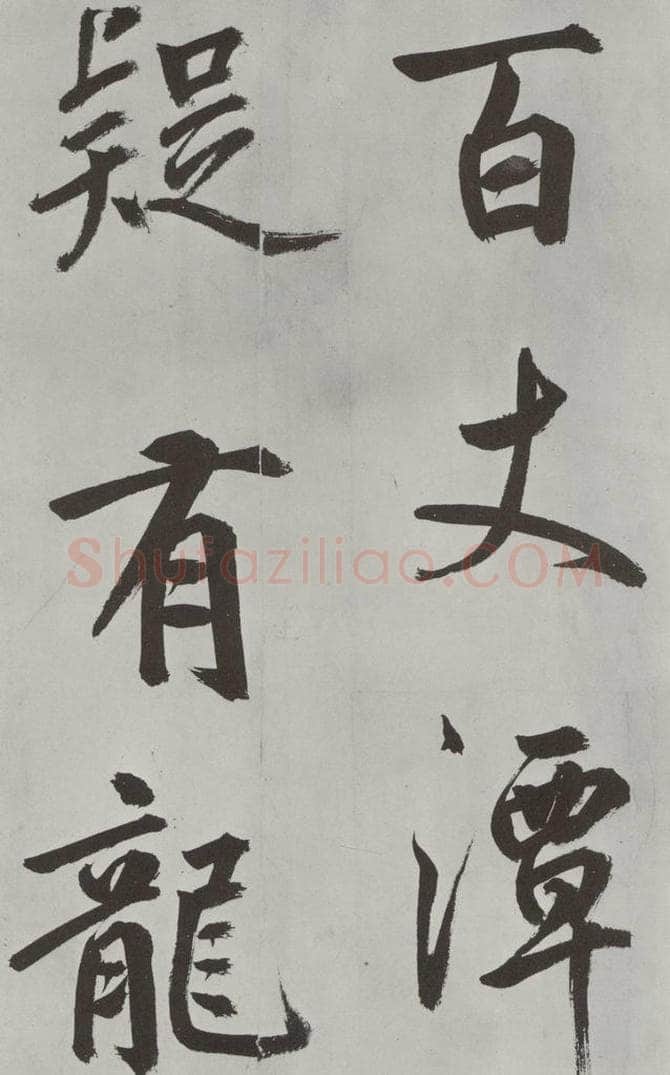 百丈潭
疑有龍
Shufaziliao.COM